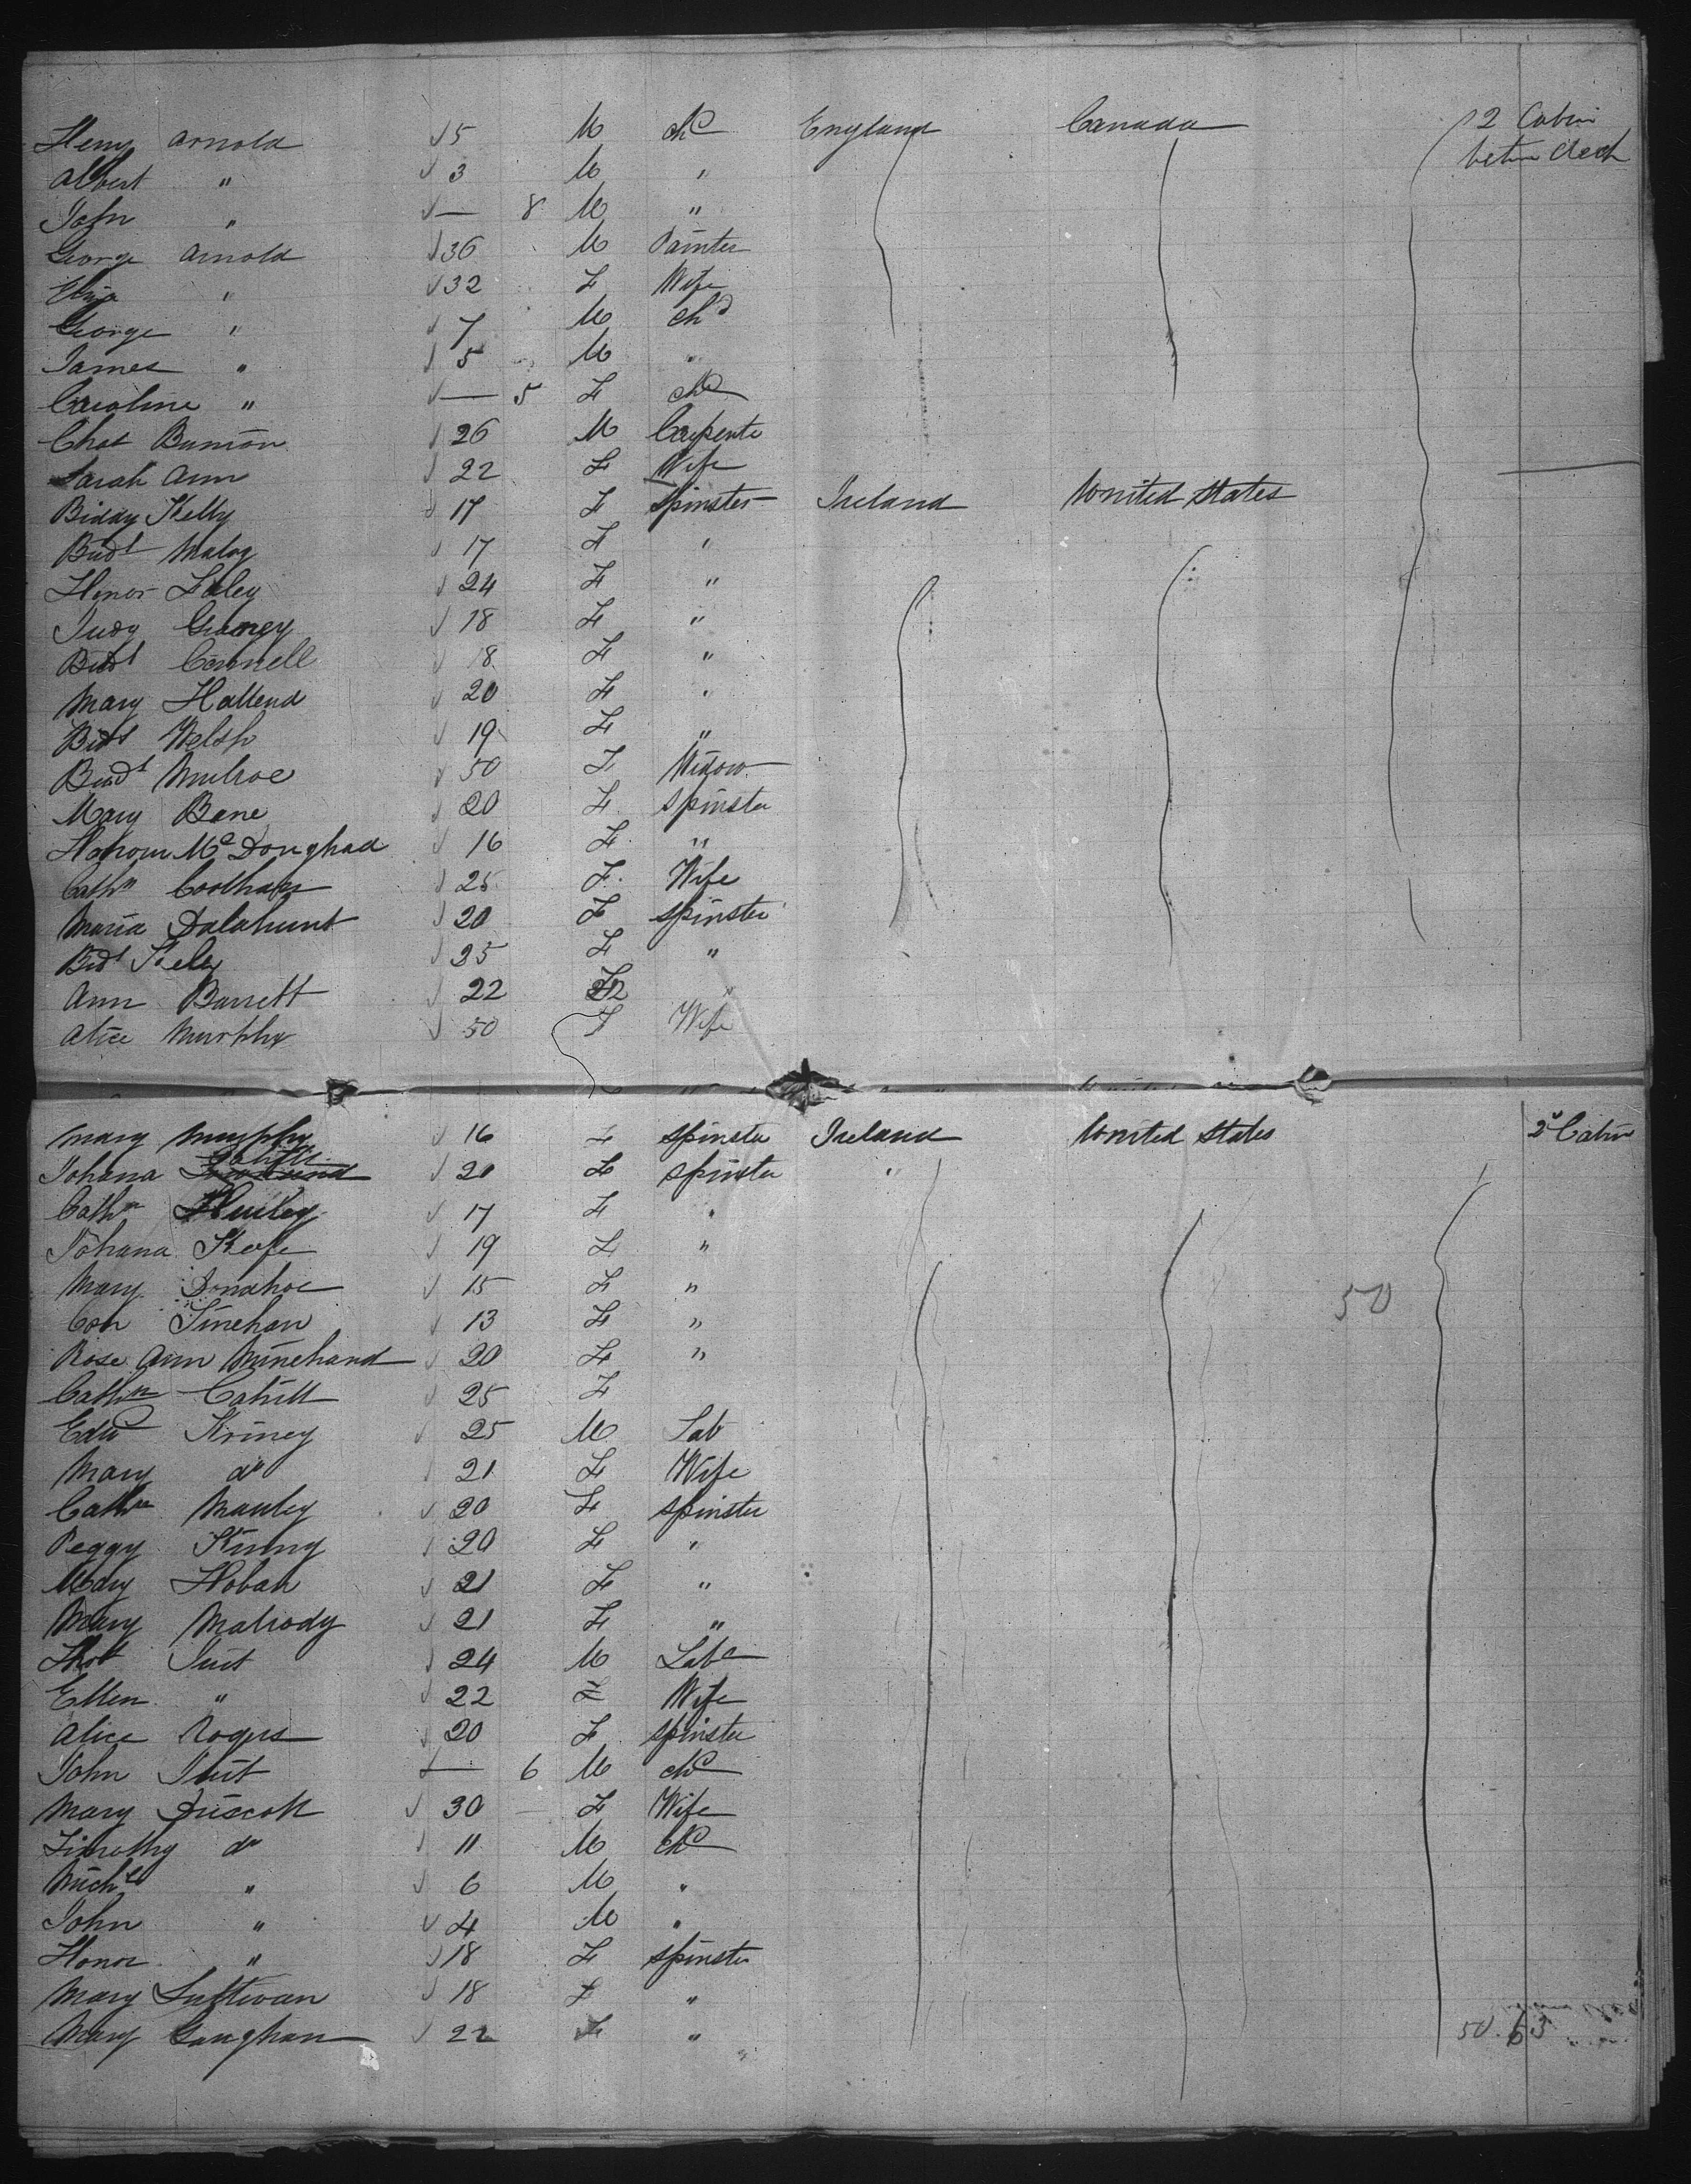 Henry Arnold 5 M chd England Canada 2 Cabin
Albert " 3 M " betw deck
John " — 8 M "
George Arnold 36 M Painter
Eliza " 32 F Wife
George " 7 M chd
James " 5 M "
Caroline " — 5 F chd
Chas 26 M Carpente
Sarah Ann 22 F Wife
Biddy Kelly 17 F Spinster Ireland United States
Bridt Maloy 17 F "
Honor Foley 24 F "
Judy 18 F "
Bridt Connell 18 F "
Mary Hallend 20 F "
Bidt Welsh 19 F "
Bridt Mulroe 50 F Widow
Mary Bane 20 F Spinster
Honour McDonghad 16 F "
Cathn 25 F Wife
Maria Dalahunt 20 F Spinster
Bidt 25 F "
Ann Barrett 22 F
Alice Murphy 50 F Wife
Mary Murphy 16 F Spinster Ireland United States 2d Cabin
Johana Cahill 20 F Spinster "
Cathn 17 F "
Johana Keefe 19 F "
Mary Donahoe 15 F "
Con 13 F " 50
Rose Ann Minehand 20 F "
Cathn Cahill 25 F
Edwd Kriney 25 M Lab
Mary do 21 F Wife
Cathn Manley 20 F Spinster
Peggy 20 F "
Mary Hoban 21 F "
Mary Malrody 21 F "
Thos Tuit 24 M Labr
Ellen " 22 F Wife
Alice Rogers 20 F Spinster
John Tuit — 6 M chd
Mary Driscoll 30 F Wife
Timothy do 11 M chd
Michl " 6 M "
John " 4 M "
Honor " 18 F Spinster
Mary Sullivan 18 F "
Mary Gaughan 22 F " 50. 63